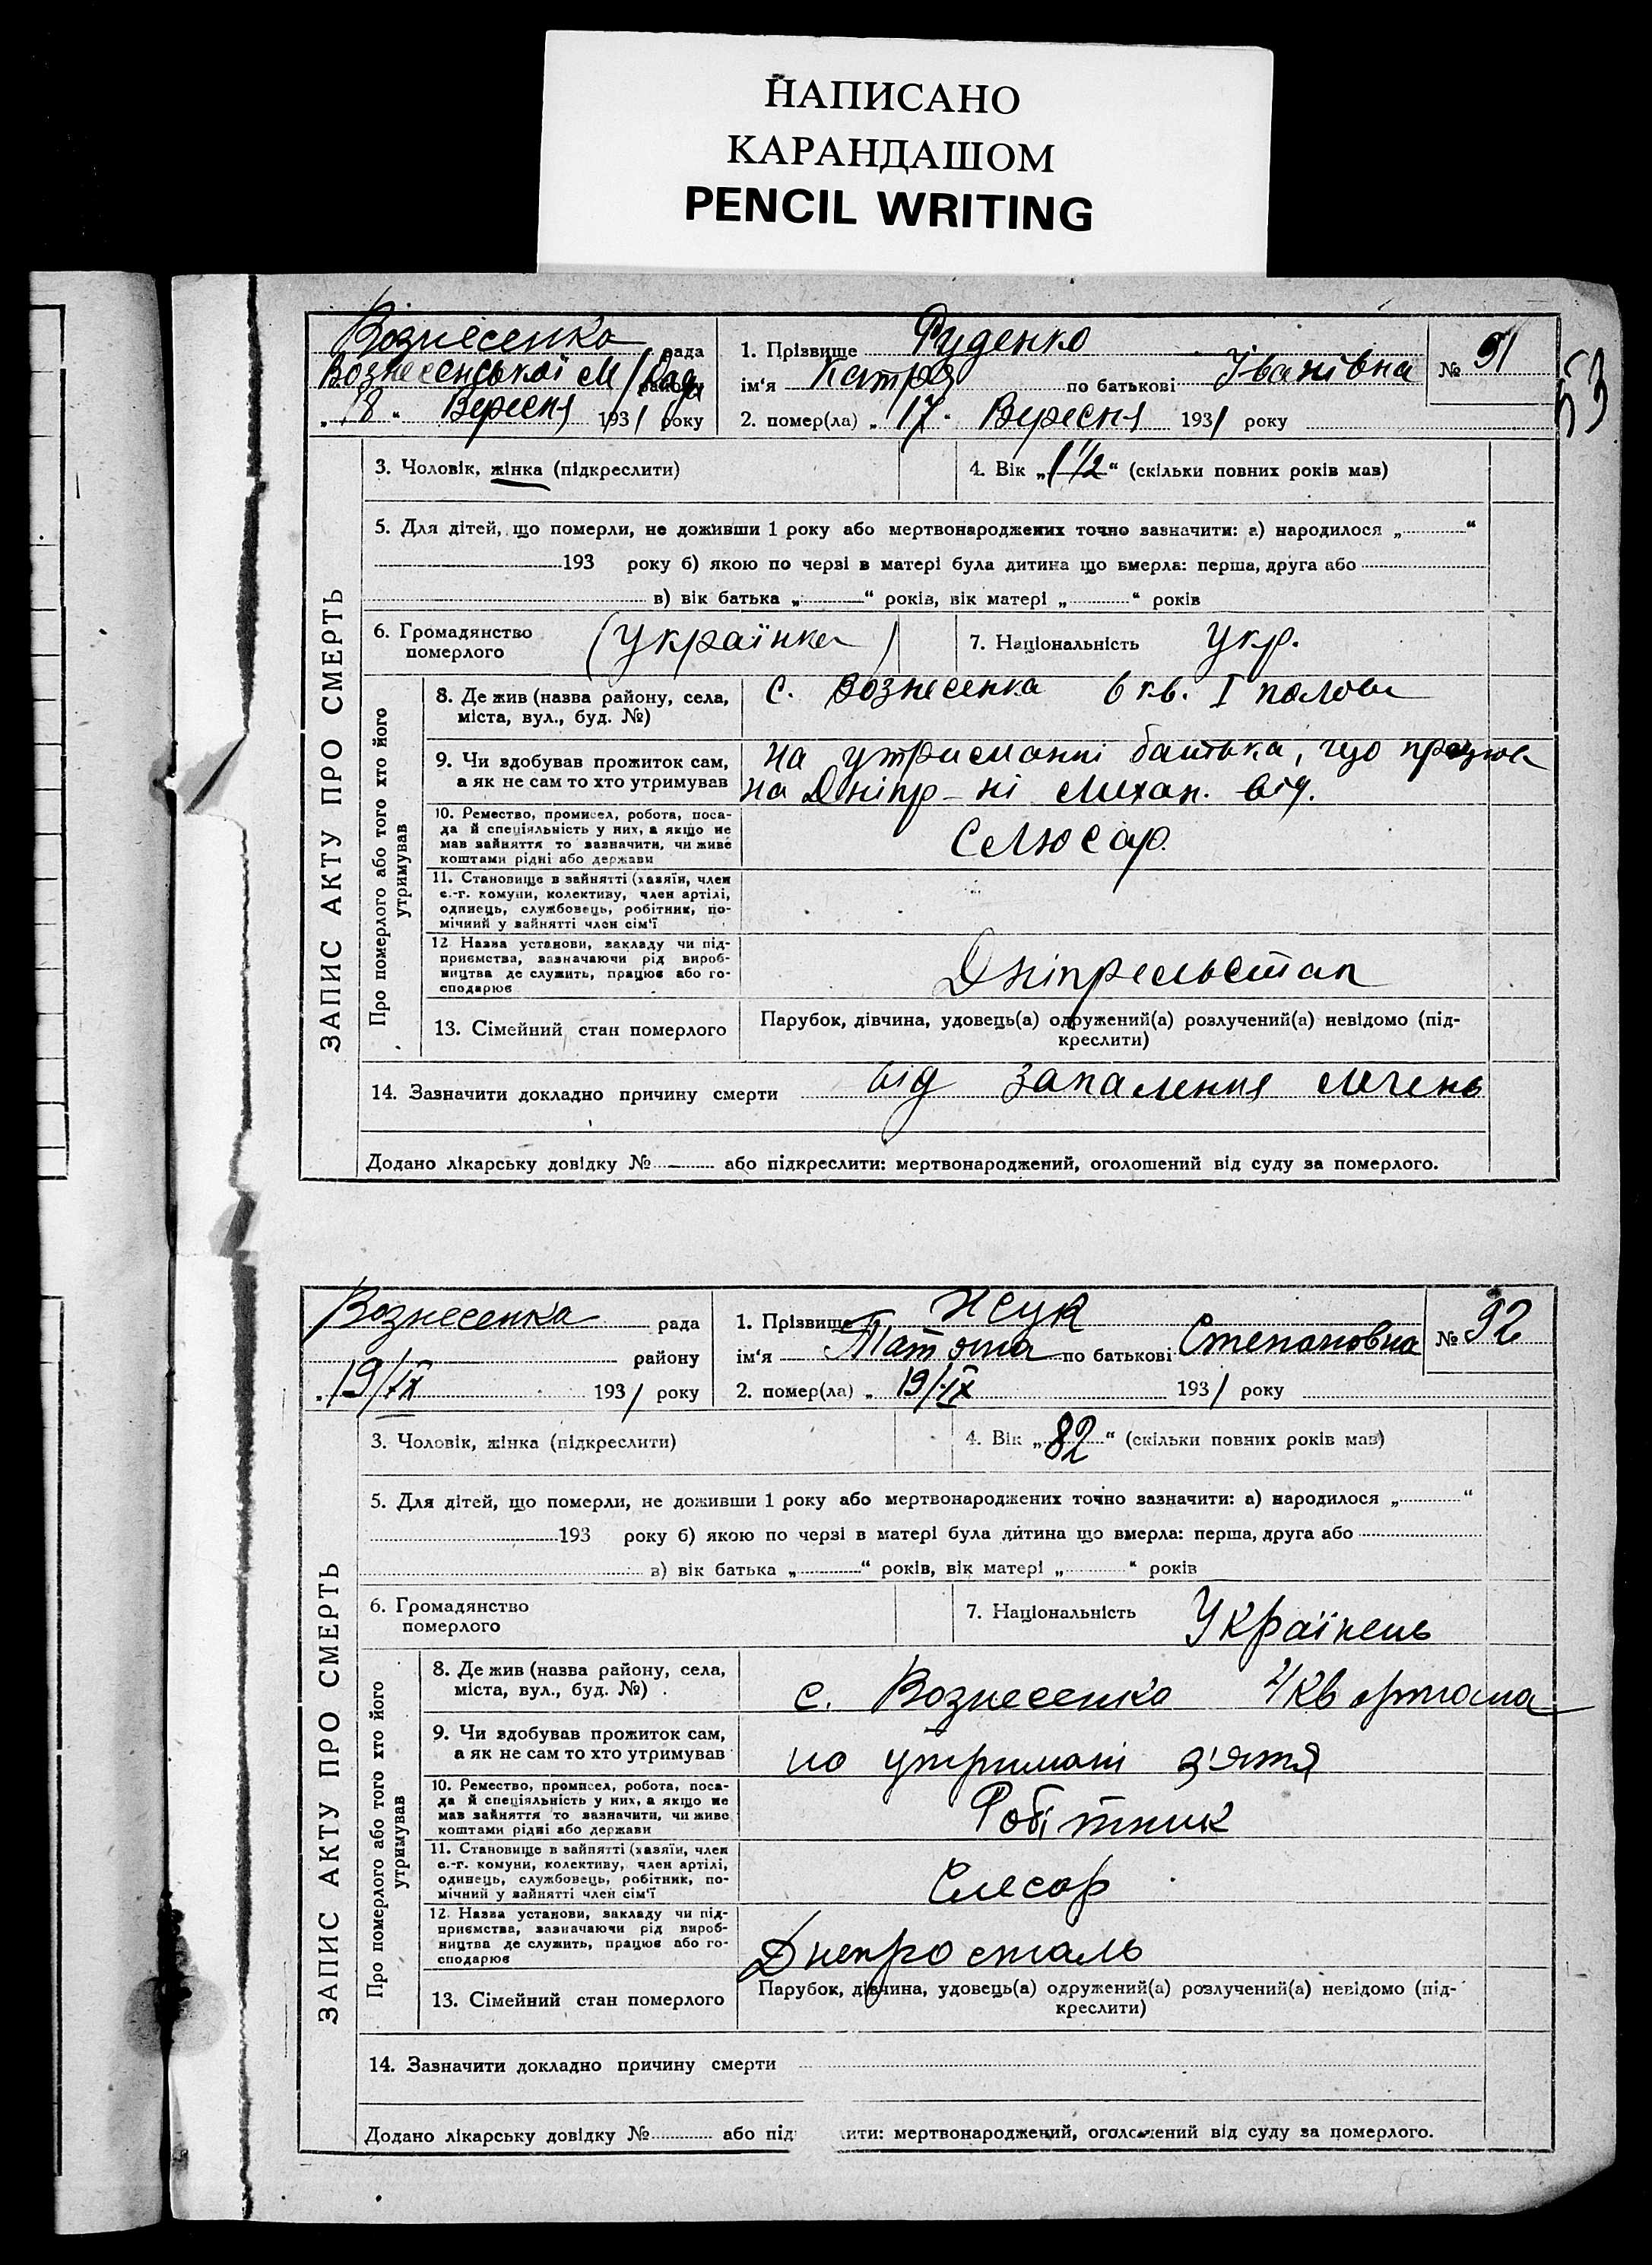 НАПИСАНО
КАРАНДАШОМ
PENCIL WRITING
53
Вознесенка рада
Вознесенської м/Рад району
„18“ Вересня 1931 року
1. Прізвище Руденко
ім‘я Катря по батькові Іванівна
№ 91
2. помер(ла) „17“ Вересня 1931 року
ЗАПИС АКТУ ПРО СМЕРТЬ
3. Чоловік, жінка (підкреслити)
4. Вік „1 1/2“ (скільки повних років мав)
5. Для дітей, що померли, не доживши 1 року або мертвонароджених точно зазначити: а) народилося „ “
193 року б) якою по черзі в матері була дитина що вмерла: перша, друга або
в) вік батька „ “ років, вік матері „ “ років
6. Громадянство
померлого
(українка)
7. Національність укр.
Про померлого або того хто його
утримував
8. Де жив (назва району, села,
міста, вул., буд. №)
с. Вознесенка 6 кв. I
9. Чи здобував прожиток сам,
а як не сам то хто утримував
на утриманні батька, що працює
на Дніпр-ні механ. від.
10. Ремество, промисел, робота, поса-
да й спеціяльність у них, а якщо не
мав зайняття то зазначити, чи живе
коштами рідні або держави
Слюсар
11. Становище в зайнятті (хазяїн, член
с.-г. комуни, колективу, член артілі,
одинець, службовець, робітник, по-
мічний у зайнятті член сім‘ї
12 Назва установи, закладу чи під-
приємства, зазначаючи рід вироб-
ництва де служить, працює або го-
сподарює
13. Сімейний стан померлого
Парубок, дівчина, удовець(а) одружений(а) розлучений(а) невідомо (під-
креслити)
14. Зазначити докладно причину смерти від запалення легень
Додано лікарську довідку № або підкреслити: мертвонароджений, оголошений від суду за померлого.
Вознесенка рада
району
„19/IX 1931 року
1. Прізвище
ім‘я Татяна по батькові Степановна
№ 92
2. помер(ла) „19/IX 1931 року
ЗАПИС АКТУ ПРО СМЕРТЬ
3. Чоловік, жінка (підкреслити)
4. Вік „82“ (скільки повних років мав)
5. Для дітей, що померли, не доживши 1 року або мертвонароджених точно зазначити: а) народилося „ “
193 року б) якою по черзі в матері була дитина що вмерла: перша, друга або
в) вік батька „ “ років, вік матері „ “ років
6. Громадянство
померлого
7. Національність Українець
Про померлого або того хто його
утримував
8. Де жив (назва району, села,
міста, вул., буд. №)
с. Вознесенка
9. Чи здобував прожиток сам,
а як не сам то хто утримував
на утримані з'ятя
10. Ремество, промисел, робота, поса-
да й спеціяльність у них, а якщо не
мав зайняття то зазначити, чи живе
коштами рідні або держави
Робітник
11. Становище в зайнятті (хазяїн, член
с.-г. комуни, колективу, член артілі,
одинець, службовець, робітник, по-
мічний у зайнятті член сім‘ї
Слесар
12. Назва установи, закладу чи під-
приємства, зазначаючи рід вироб-
ництва де служить, працює або го-
сподарює
Днепросталь
13. Сімейний стан померлого
Парубок, дівчина, удовець(а) одружений(а) розлучений(а) невідомо (під-
креслити)
14. Зазначити докладно причину смерти
Додано лікарську довідку № або під ити: мертвонароджений, оголошений від суду за померлого.